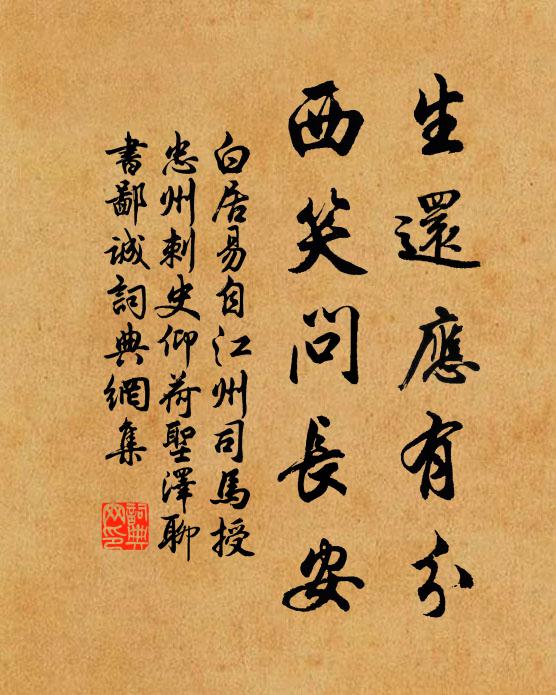 生還應有分
西笑問長安
白居易自江州司馬授
忠州刺史仰荷聖澤聊
書鄙誠詞典網集
詞典
网印